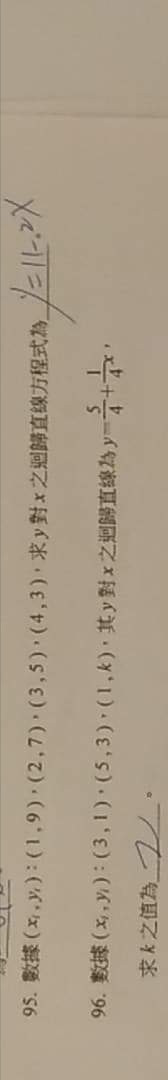 95. 數據 (xᵢ, yᵢ)：(1, 9)，(2, 7)，(3, 5)，(4, 3)，求 y 對 x 之迴歸直線方程式為 y=11-2x
96. 數據 (xᵢ, yᵢ)：(3, 1)，(5, 3)，(1, k)，其 y 對 x 之迴歸直線為 y=5/4+1/4x，
求 k 之值為 2。